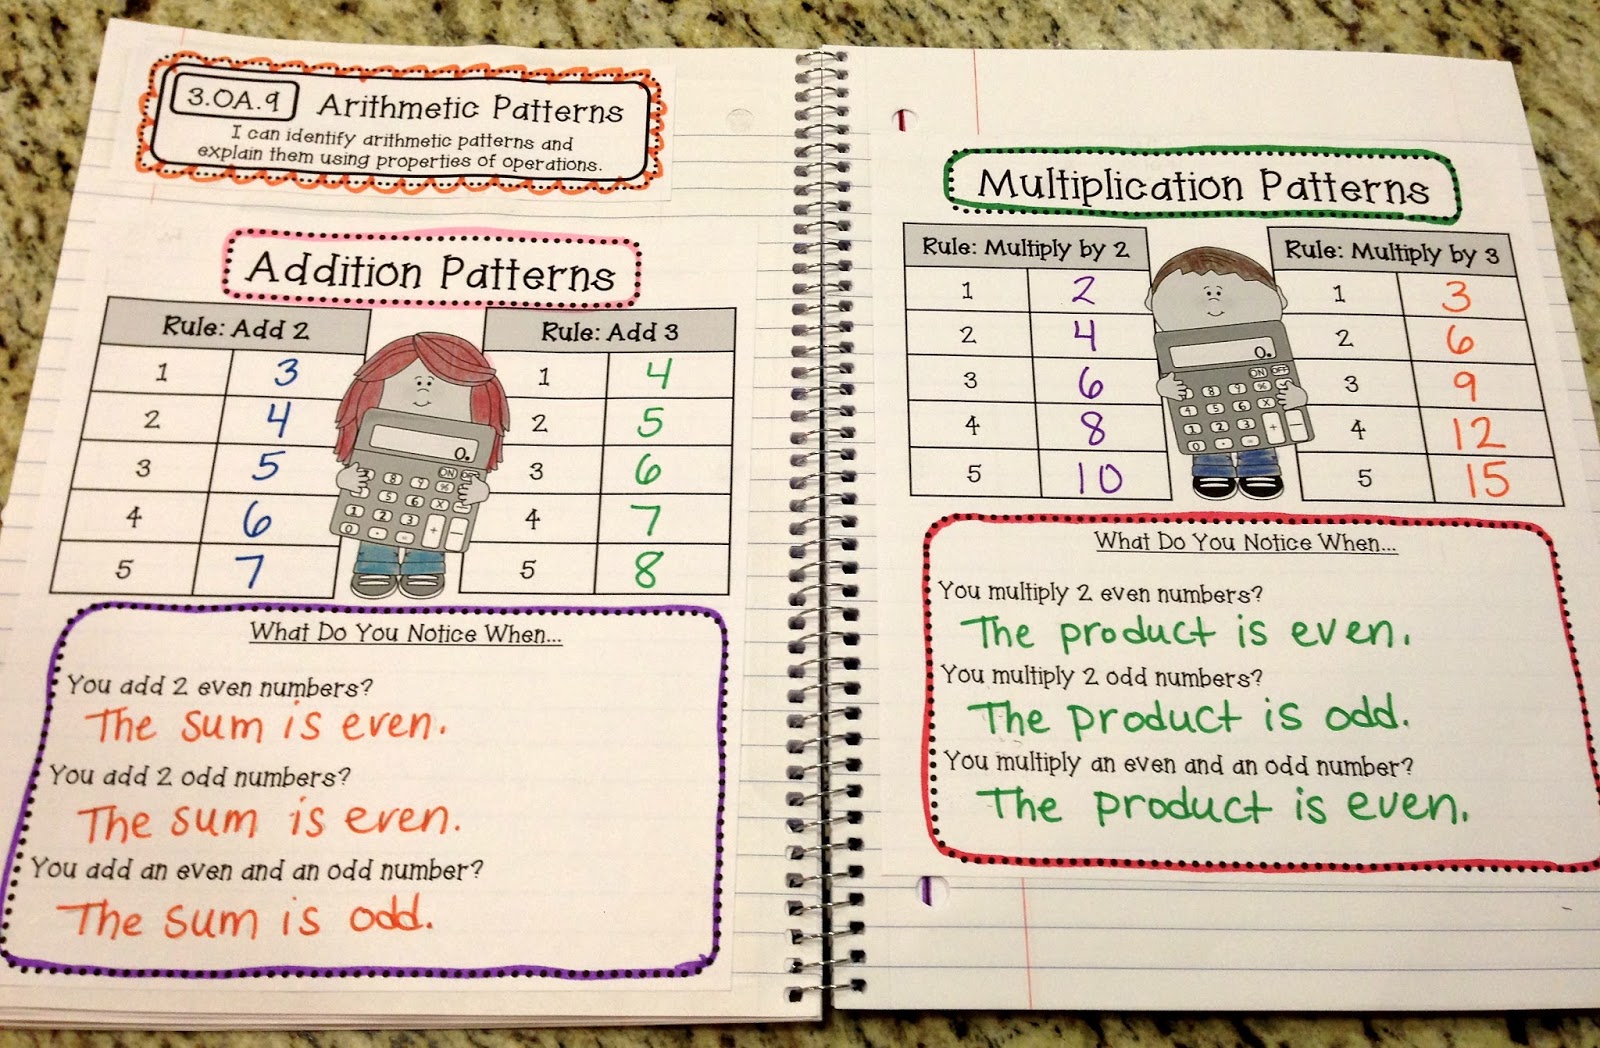 3.OA.9 Arithmetic Patterns
I can identify arithmetic patterns and
explain them using properties of operations.
Addition Patterns
Rule: Add 2
1 3
2 4
3 5
4 6
5 7
Rule: Add 3
1 4
2 5
3 6
4 7
5 8
0.
ON
8 9 %
5 6 X
1 2 3 + −
0 . =
What Do You Notice When...
You add 2 even numbers?
The sum is even.
You add 2 odd numbers?
The sum is even.
You add an even and an odd number?
The sum is odd.
Multiplication Patterns
Rule: Multiply by 2
1 2
2 4
3 6
4 8
5 10
Rule: Multiply by 3
1 3
2 6
3 9
4 12
5 15
0.
ON OFF
8 9 %
4 5 6 X
1 2 3 + −
0 . =
What Do You Notice When...
You multiply 2 even numbers?
The product is even.
You multiply 2 odd numbers?
The product is odd.
You multiply an even and an odd number?
The product is even.